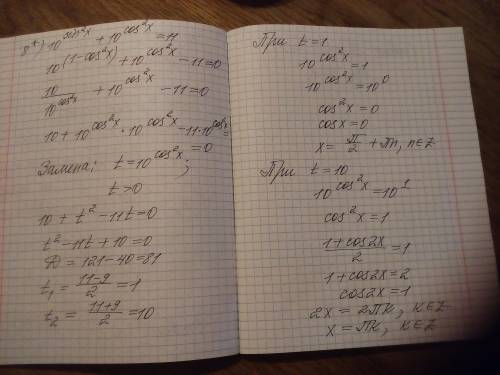 8*) 10^(sin²x) + 10^(cos²x) = 11
10^(1-cos²x) + 10^(cos²x) - 11 = 0
10/10^(cos²x) + 10^(cos²x) - 11 = 0
10 + 10^(cos²x) · 10^(cos²x) - 11·10^(cos²x) =
= 0
Замена: t = 10^(cos²x);
t > 0
10 + t² - 11t = 0
t² - 11t + 10 = 0
D = 121 - 40 = 81
t₁ = (11-9)/2 = 1
t₂ = (11+9)/2 = 10
При t = 1
10^(cos²x) = 1
10^(cos²x) = 10⁰
cos²x = 0
cosx = 0
x = π/2 + πn, n∈Z
При t = 10
10^(cos²x) = 10¹
cos²x = 1
(1+cos2x)/2 = 1
1 + cos2x = 2
cos2x = 1
2x = 2πk, k∈Z
x = πk, k∈Z